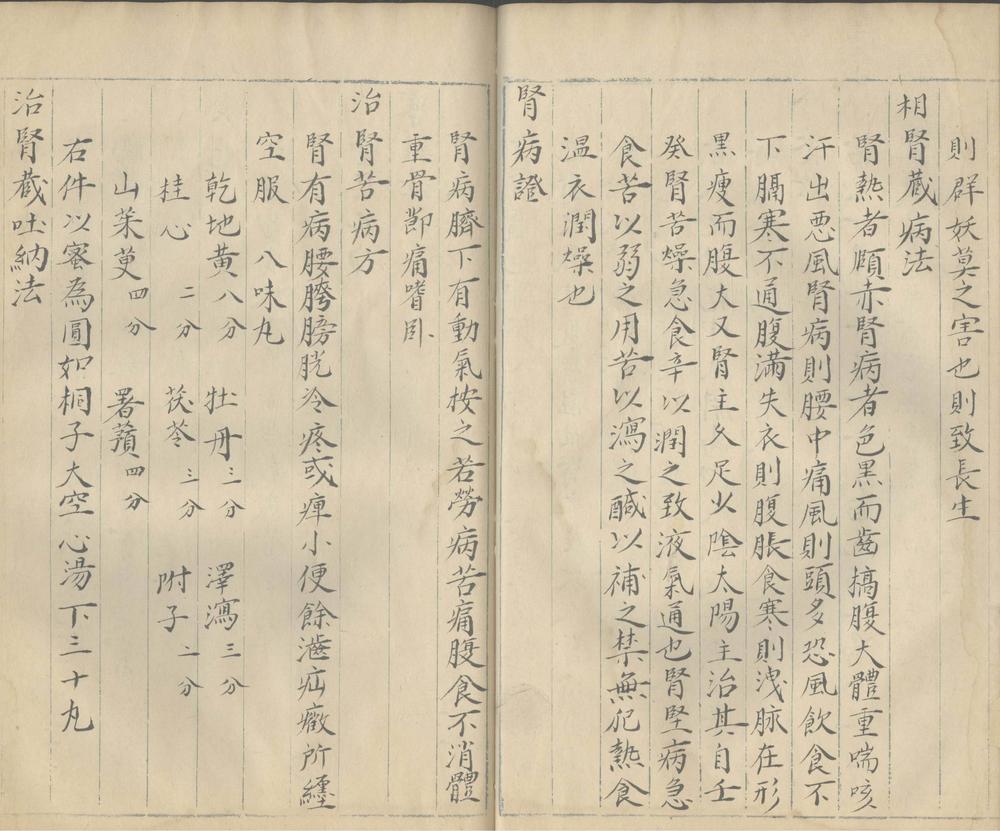 則群妖莫之害也則致長生
相腎藏病法
腎熱者頤赤腎病者色黑而齒槁腹大體重喘咳
汗出惡風腎病則腰中痛風則頭多恐風飲食不
下膈寒不通腹滿失衣則腹脹食寒則洩脉在形
黑瘦而腹大又腎主久足少陰太陽主治其自壬
癸腎苦燥急食辛以潤之致液氣通也腎堅病急
食苦以弱之用苦以瀉之醎以補之禁無犯熱食
温衣潤燥也
腎病證
腎病臍下有動氣桉之若勞病苦痛腹食不消體
重骨節痛嗜卧
治腎苦病方
腎有病腰胯膀胱冷疼或痺小便餘瀝疝瘕所纏
空服 八味丸
乾地黄八分 牡丹三分 澤瀉三分
桂心二分 茯苓三分 附子二分
山茱萸四分 署蕷四分
右件以蜜為圓如桐子大空心湯下三十丸
治腎藏吐納法